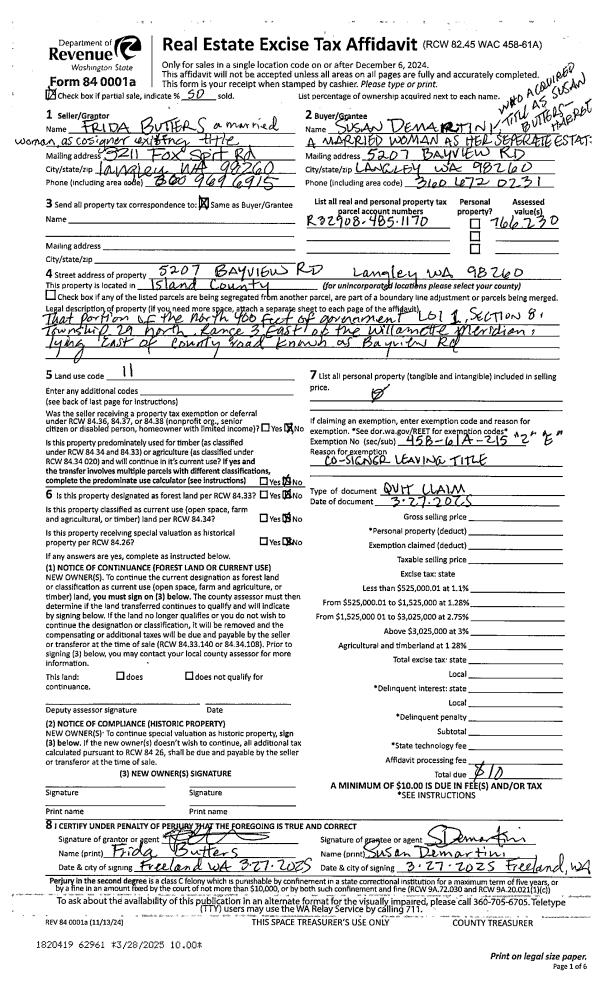 Department of
Revenue
Washington State
Form 84 0001a
Real Estate Excise Tax Affidavit (RCW 82.45 WAC 458-61A)
Only for sales in a single location code on or after December 6, 2024.
This affidavit will not be accepted unless all areas on all pages are fully and accurately completed.
This form is your receipt when stamped by cashier. Please type or print.
Check box if partial sale, indicate % 50 sold.
List percentage of ownership acquired next to each name.
WHO ACQUIRED
TITLE AS SUSAN
BUTTERS-
1 Seller/Grantor
Name FRIDA BUTTERS a married
woman, as cosigner existing title
Mailing address 5211 Fox Spit Rd
City/state/zip Langley WA 98260
Phone (including area code) 360 969 6915
2 Buyer/Grantee
Name SUSAN DEMARTINI,
A MARRIED WOMAN AS HER SEPERATE ESTAT
Mailing address 5207 BAYVIEW RD
City/state/zip LANGLEY WA 98260
Phone (including area code) 3160 672 0231
3 Send all property tax correspondence to: Same as Buyer/Grantee
Name
Mailing address
City/state/zip
List all real and personal property tax
parcel account numbers
Personal
property?
Assessed
value(s)
R32908-485-1170
766,230
4 Street address of property 5207 BAYVIEW RD Langley WA 98260
This property is located in Island County (for unincorporated locations please select your county)
Check box if any of the listed parcels are being segregated from another parcel, are part of a boundary line adjustment or parcels being merged.
Legal description of property (if you need more space, attach a separate sheet to each page of the affidavit).
That Portion of the North 400 Feet of government Lot 1, Section 8,
Township 29 north, Range 3 East of the Willamette Meridian,
lying East of county road known as Bayview Rd
5 Land use code 11
Enter any additional codes
(see back of last page for instructions)
Was the seller receiving a property tax exemption or deferral
under RCW 84.36, 84.37, or 84.38 (nonprofit org., senior
citizen or disabled person, homeowner with limited income)? Yes No
Is this property predominately used for timber (as classified
under RCW 84.34 and 84.33) or agriculture (as classified under
RCW 84.34 020) and will continue in it's current use? If yes and
the transfer involves multiple parcels with different classifications,
complete the predominate use calculator (see instructions) Yes No
6 Is this property designated as forest land per RCW 84.33? Yes No
Is this property classified as current use (open space, farm
and agricultural, or timber) land per RCW 84.34? Yes No
Is this property receiving special valuation as historical
property per RCW 84.26? Yes No
If any answers are yes, complete as instructed below.
(1) NOTICE OF CONTINUANCE (FOREST LAND OR CURRENT USE)
NEW OWNER(S): To continue the current designation as forest land
or classification as current use (open space, farm and agriculture, or
timber) land, you must sign on (3) below. The county assessor must then
determine if the land transferred continues to qualify and will indicate
by signing below. If the land no longer qualifies or you do not wish to
continue the designation or classification, it will be removed and the
compensating or additional taxes will be due and payable by the seller
or transferor at the time of sale (RCW 84.33.140 or 84.34.108). Prior to
signing (3) below, you may contact your local county assessor for more
information.
This land: does does not qualify for
continuance.
Deputy assessor signature Date
(2) NOTICE OF COMPLIANCE (HISTORIC PROPERTY)
NEW OWNER(S)· To continue special valuation as historic property, sign
(3) below. If the new owner(s) doesn't wish to continue, all additional tax
calculated pursuant to RCW 84 26, shall be due and payable by the seller
or transferor at the time of sale.
(3) NEW OWNER(S) SIGNATURE
Signature Signature
Print name Print name
7 List all personal property (tangible and intangible) included in selling
price.
If claiming an exemption, enter exemption code and reason for
exemption. *See dor.wa.gov/REET for exemption codes*
Exemption No (sec/sub) 458-61A-215 "2" "E"
Reason for exemption
CO-SIGNER LEAVING TITLE
Type of document QUIT CLAIM
Date of document 3-27-2025
Gross selling price
*Personal property (deduct)
Exemption claimed (deduct)
Taxable selling price
Excise tax: state
Less than $525,000.01 at 1.1%
From $525,000.01 to $1,525,000 at 1.28%
From $1,525,000.01 to $3,025,000 at 2.75%
Above $3,025,000 at 3%
Agricultural and timberland at 1 28%
Total excise tax· state
Local
*Delinquent interest: state
Local
*Delinquent penalty
Subtotal
*State technology fee
Affidavit processing fee
Total due $10
A MINIMUM OF $10.00 IS DUE IN FEE(S) AND/OR TAX
*SEE INSTRUCTIONS
8 I CERTIFY UNDER PENALTY OF PERJURY THAT THE FOREGOING IS TRUE AND CORRECT
Signature of grantor or agent
Name (print) Frida Butters
Date & city of signing Freeland WA 3-27-2025
Signature of grantee or agent SDemartin
Name (print) Susan Demartini
Date & city of signing 3-27-2025 Freeland, WA
Perjury in the second degree is a class C felony which is punishable by confinement in a state correctional institution for a maximum term of five years, or
by a fine in an amount fixed by the court of not more than $10,000, or by both such confinement and fine (RCW 9A.72.030 and RCW 9A.20.021(1)(c)).
To ask about the availability of this publication in an alternate format for the visually impaired, please call 360-705-6705. Teletype
(TTY) users may use the WA Relay Service by calling 711.
REV 84 0001a (11/13/24) THIS SPACE TREASURER'S USE ONLY COUNTY TREASURER
1820419 62961 *3/28/2025 10.00*
Print on legal size paper.
Page 1 of 6